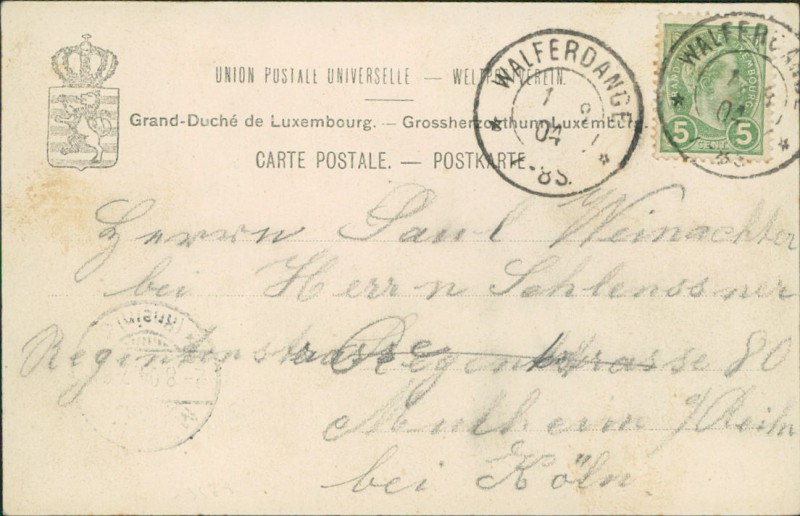 UNION POSTALE UNIVERSELLE — WELTPOSTVEREIN.
Grand-Duché de Luxembourg. — Grossherzogthum Luxemburg.
CARTE POSTALE. — POSTKARTE
WALFERDANGE
1 8
04
7-8S.
WALFERDANGE
1 8
04
5 5
CENT
Herrn Paul Weinachter
bei Herrn Schlenssner
Regintenstrasse Regentstrasse 80
Mulheim a/Reihn
bei Köln.